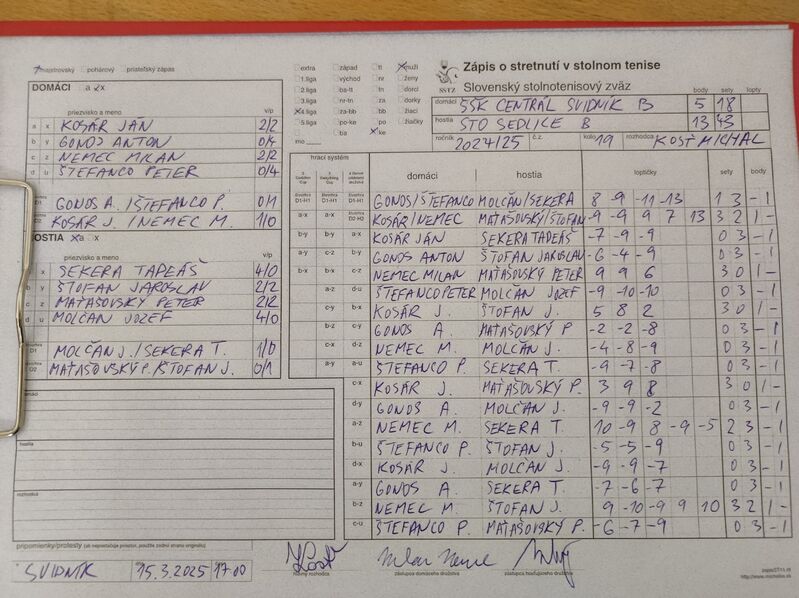 majstrovský pohárový priateľský zápas
DOMÁCI a x
priezvisko a meno v/p
a x KOSÁR JÁN 2/2
b y GONOS ANTON 0/4
c z NEMEC MILAN 2/2
d u ŠTEFANCO PETER 0/4
GONOS A./ŠTEFANCO P. 0/1
KOSÁR J./NEMEC M. 1/0
HOSTIA a x
priezvisko a meno v/p
x SEKERA TADEÁŠ 4/0
b y ŠTOFAN JAROSLAV 2/2
c z MAŤAŠOVSKÝ PETER 2/2
d u MOLČAN JOZEF 4/0
D1 MOLČAN J./SEKERA T. 1/0
D2 MAŤAŠOVSKÝ P./ŠTOFAN J. 0/1
domáci
hostia
rozhodca
pripomienky/protesty (ak nepostačuje priestor, použite zadnú stranu originálu)
SVIDNÍK 15.3.2025 17.00
extra západ tl muži
1.liga východ nr ženy
2.liga ba-tt tn dorci
3.liga nr-tn za dorky
4.liga za-bb bb žiaci
5.liga po-ke po žiačky
ba ke
mo
SSTZ
Zápis o stretnutí v stolnom tenise
Slovenský stolnotenisový zväz
body sety lopty
domáci ŠŠK CENTRÁL SVIDNÍK B 5 18
hostia STO SEDLICE B 13 43
ročník 2024/25 č.z. kolo 19 rozhodca KOSŤ MICHAL
hrací systém domáci hostia loptičky sety body
D1-H1 D1-H1 GONOS/ŠTEFANCO MOLČAN/SEKERA 8 -9 -11 -13 1 3 - 1
a-x a-x D2-H2 KOSÁR/NEMEC MAŤAŠOVSKÝ/ŠTOFAN -9 -9 9 7 13 3 2 1 -
b-y b-y a-x KOSÁR JÁN SEKERA TADEÁŠ -7 -9 -9 0 3 - 1
a-y c-z b-y GONOS ANTON ŠTOFAN JAROSLAV -6 -4 -9 0 3 - 1
b-x b-x c-z NEMEC MILAN MAŤAŠOVSKÝ PETER 9 9 6 3 0 1 -
a-z d-u ŠTEFANCO PETER MOLČAN JOZEF -9 -10 -10 0 3 - 1
c-y b-x KOSÁR J. ŠTOFAN J. 5 8 2 3 0 1 -
b-z c-y GONOS A. MAŤAŠOVSKÝ P. -2 -2 -8 0 3 - 1
c-x d-z NEMEC M. MOLČAN J. -4 -8 -9 0 3 - 1
a-y a-u ŠTEFANCO P. SEKERA T. -9 -7 -8 0 3 - 1
c-x KOSÁR J. MAŤAŠOVSKÝ P. 3 9 8 3 0 1 -
d-y GONOS A. MOLČAN J. -9 -9 -2 0 3 - 1
a-z NEMEC M. SEKERA T. 10 -9 8 -9 -5 2 3 - 1
b-u ŠTEFANCO P. ŠTOFAN J. -5 -5 -9 0 3 - 1
d-x KOSÁR J. MOLČAN J. -9 -9 -7 0 3 - 1
a-y GONOS A. SEKERA T. -7 -6 -7 0 3 - 1
b-z NEMEC M. ŠTOFAN J. 9 -10 -9 9 10 3 2 1 -
c-u ŠTEFANCO P. MAŤAŠOVSKÝ P. -6 -7 -9 0 3 - 1
hlavný rozhodca zástupca domáceho družstva zástupca hosťujúceho družstva